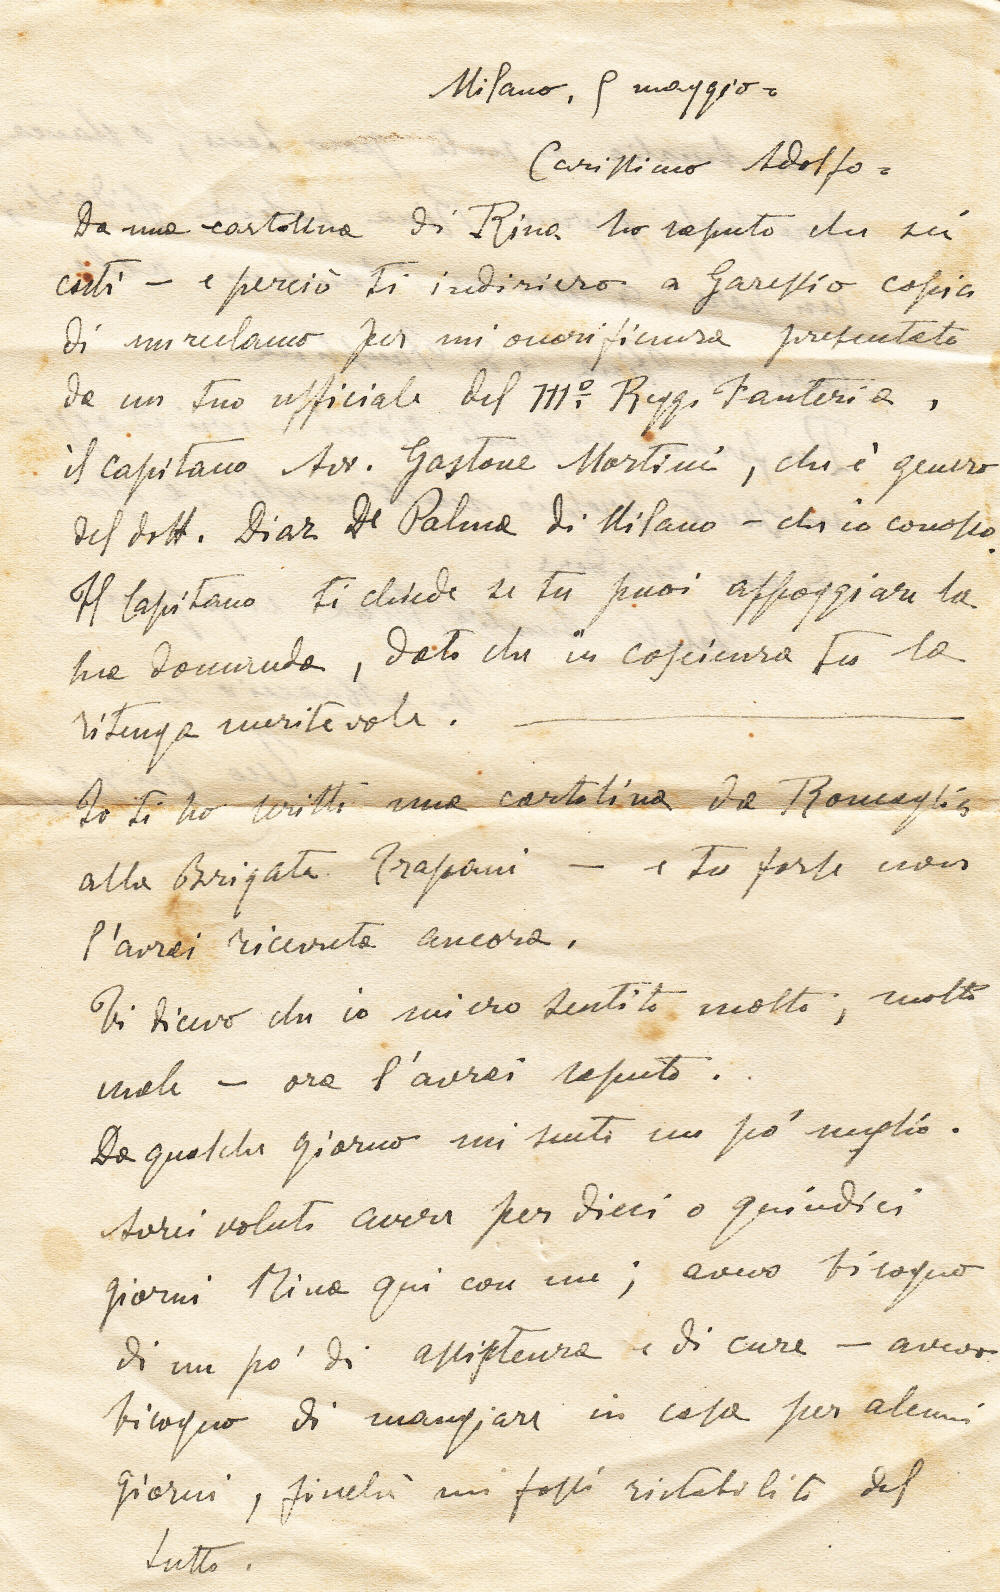 Milano, 5 maggio =
Carissimo Adolfo =
Da una cartolina di Rina ho saputo che sei
costì — e perciò ti indirizzo a Garessio copia
di un reclamo per un'onorificenza presentato
da un tuo ufficiale del 111º Regg. Fanteria,
il capitano Avv. Gastone Martini, che è genero
del dott. Diaz De Palma di Milano — che io conosco.
Il Capitano ti chiede se tu puoi appoggiare la
sua domanda, dato che in coscienza tu la
ritenga meritevole.
Io ti ho scritto una cartolina da Roncaglia
alla Brigata Trapani — e tu forse non
l'avrai ricevuta ancora.
Ti dicevo che io mi ero sentito molto, molto
male — ora l'avrai saputo.
Da qualche giorno mi sento un po' meglio.
Avrei voluto avere per dieci o quindici
giorni Rina qui con me; avevo bisogno
di un po' di assistenza e di cure — avevo
bisogno di mangiare in casa per alcuni
giorni, finchè mi fossi ristabilito del
tutto.